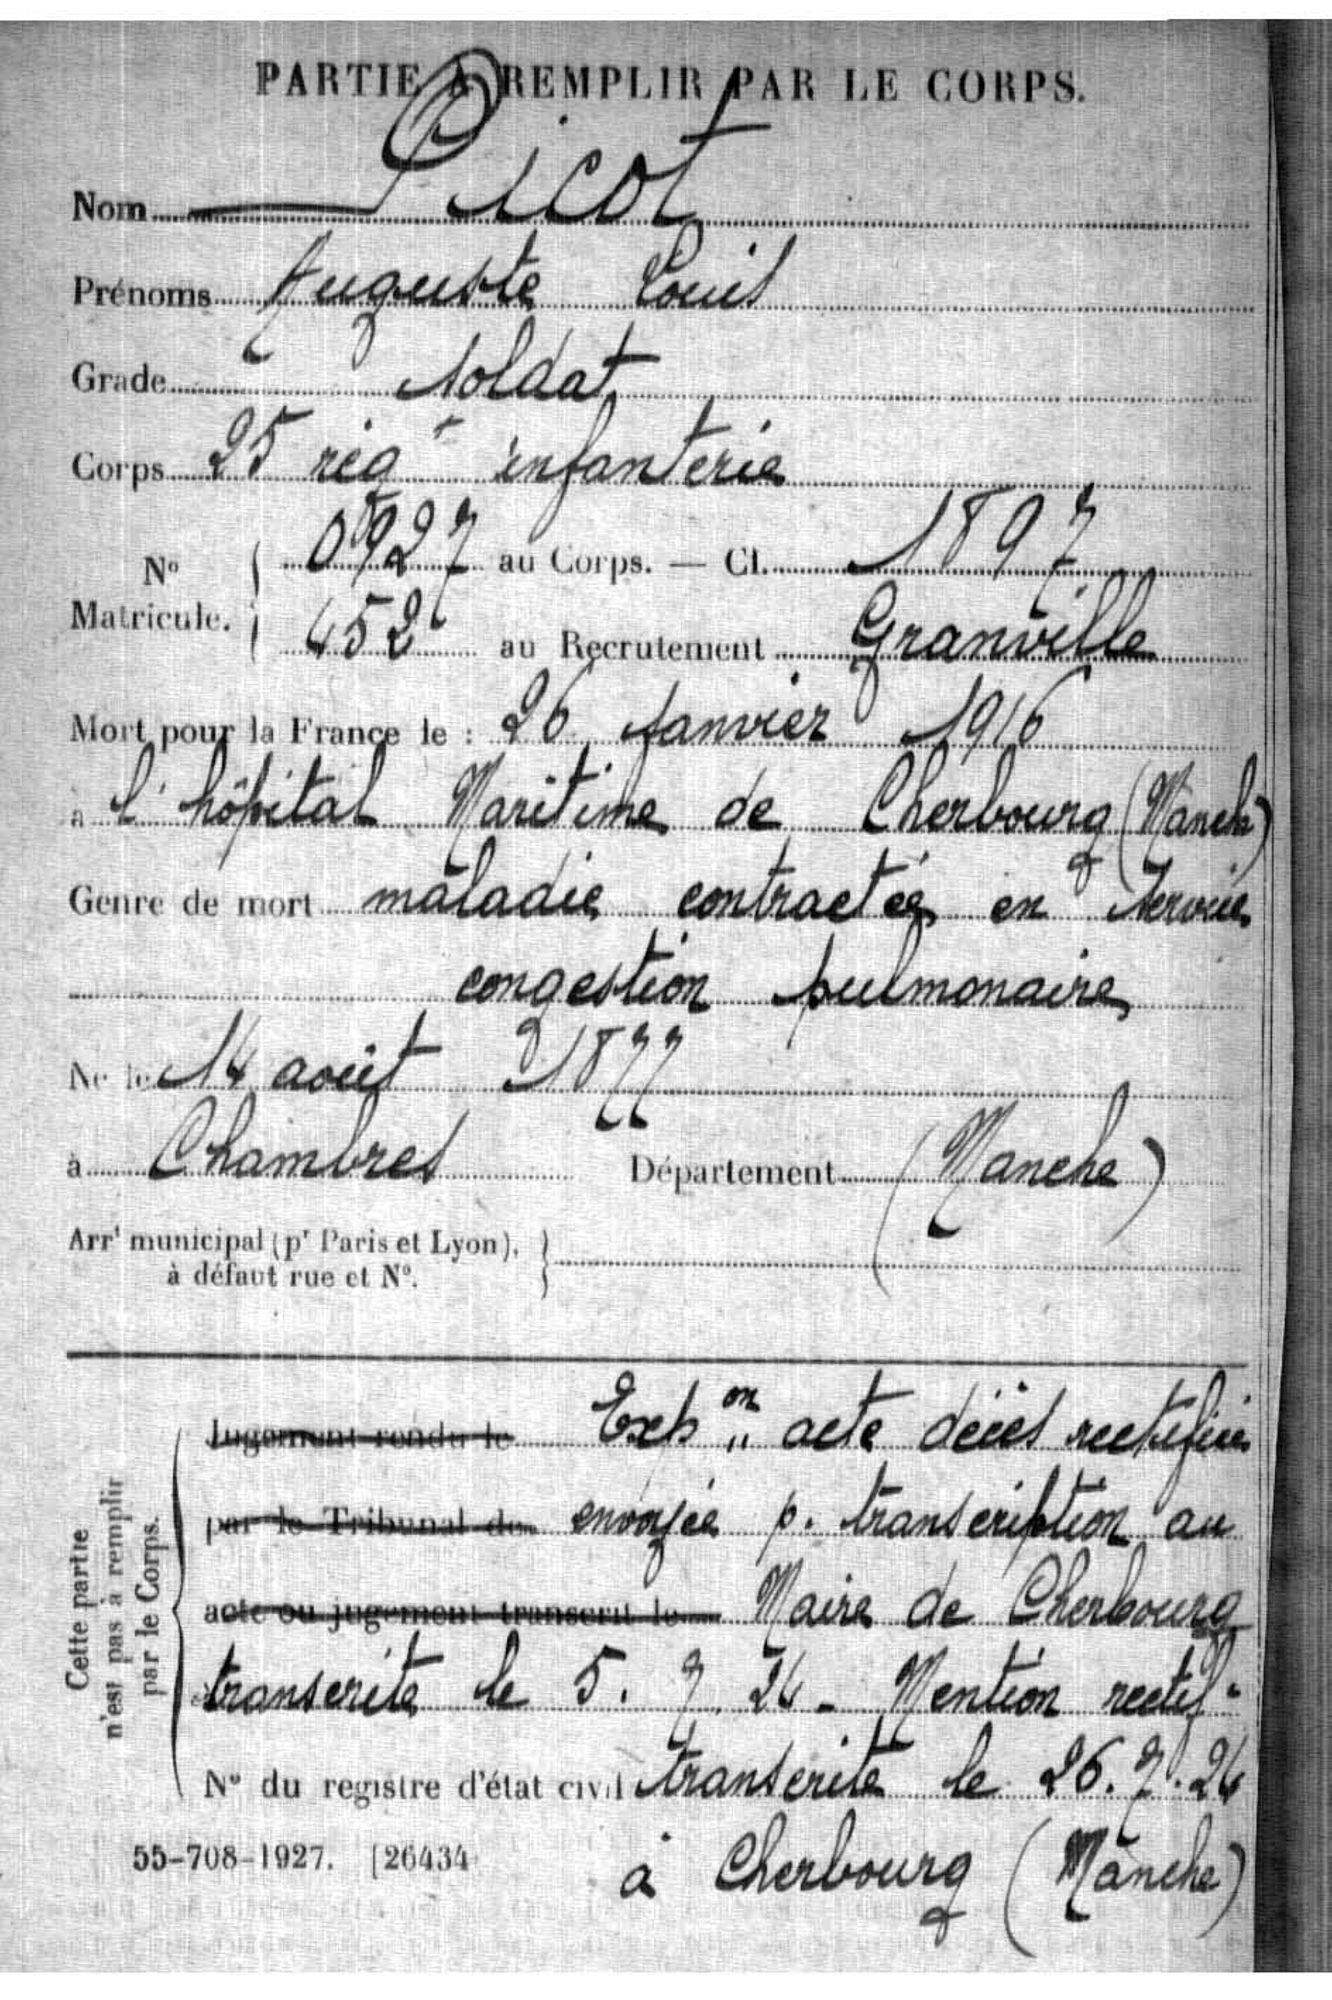 PARTIE A REMPLIR PAR LE CORPS.
Nom Picot
Prénoms Auguste Louis
Grade Soldat
Corps 25 régt infanterie
No Matricule. 0927 au Corps. — Cl. 1897
452 au Recrutement Granville
Mort pour la France le : 26 Janvier 1916
à l'hôpital Maritime de Cherbourg (Manche)
Genre de mort maladie contractée en service
congestion pulmonaire
Né le 14 août 1877
à Chambres Département (Manche)
Arrt municipal (pr Paris et Lyon),
à défaut rue et No.
Cette partie
n'est pas à remplir
par le Corps.
Jugement rendu le Expon acte décès rectifiée
par le Tribunal de envoyée p. transcription au
acte ou jugement transcrit le Maire de Cherbourg
transcrite le 5. 7. 24 - Mention rectif.
No du registre d'état civil transcrite le 26. 7. 24
55-708-1927. [26434
à Cherbourg (Manche)